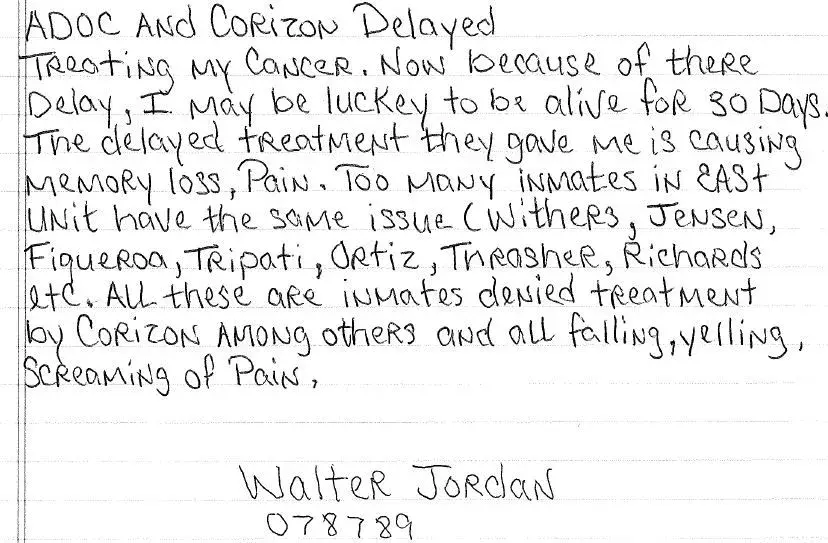 ADOC AND CORIZON Delayed
TReating MY CANCER. NOW because of theRE
Delay, I May be luckey to be alive foR 30 Days.
The delayed tREatMENt they gave Me is causing
MEMORY loss, Pain. Too MANY iNMates iN EASt
UNit have the same issue (WitheRs, JENSEN,
FigueRoa, TRipati, ORtiz, ThRasheR, RichaRds
etc. All these aRe iNMates deNied tReatMeNt
by CoRizoN AMONg otheRs and all falling, yelling,
ScReaMiNg of PaiN,
WalteR JoRdaN
078789